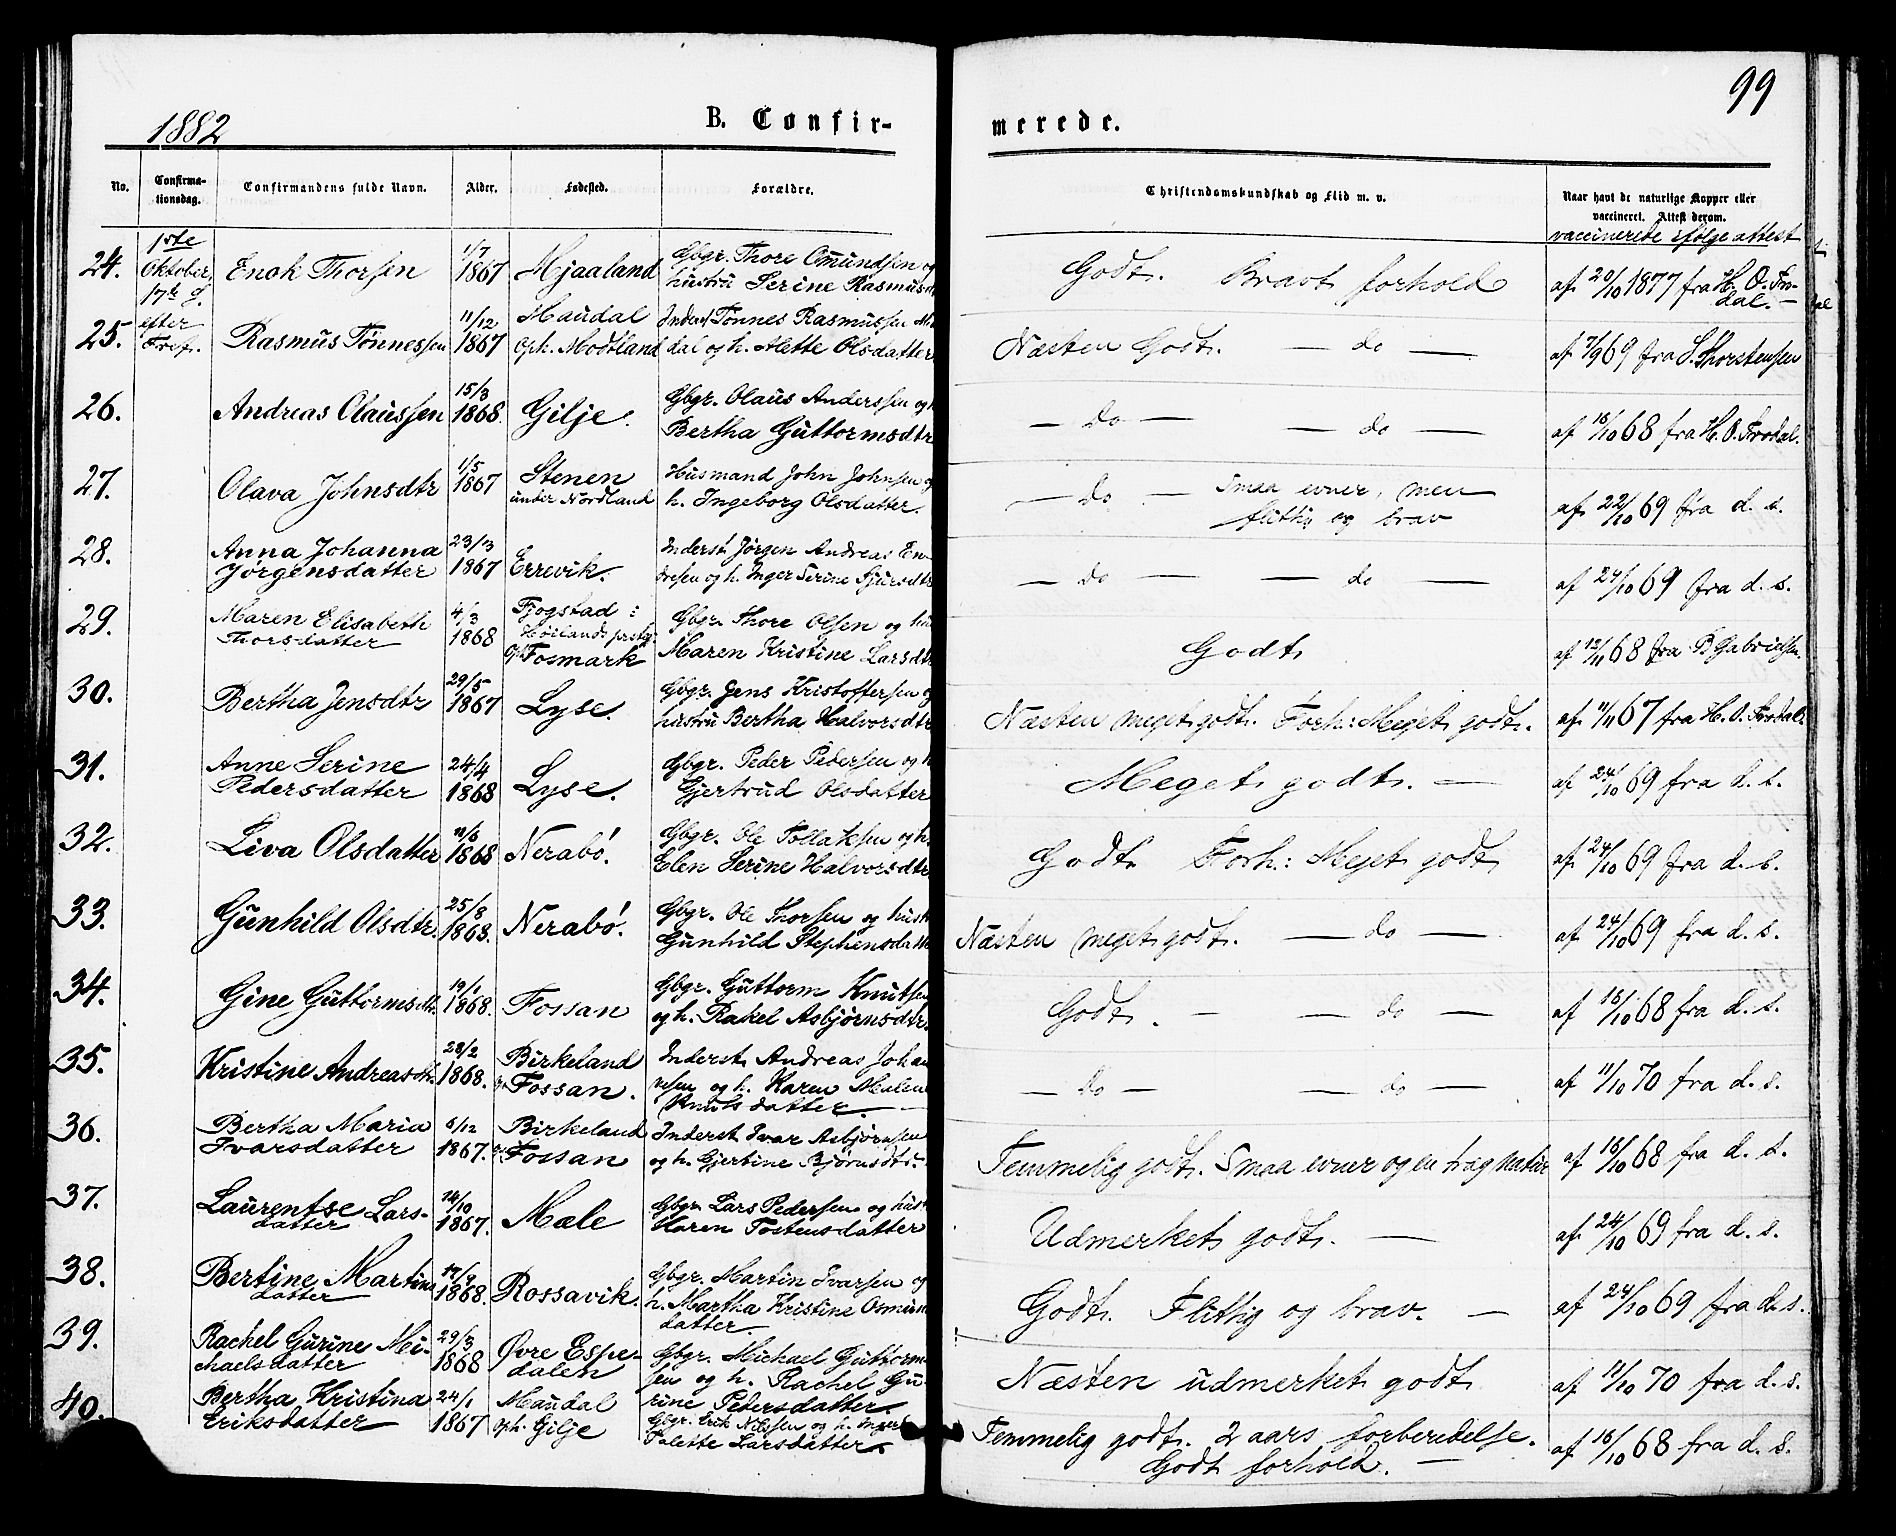 99
1882
B. Confir-
merede.
No.
Confirma-
tionsdag.
Confirmandens fulde Navn.
Alder.
Fødested.
Forældre.
Christendomskundskab og Flid m. v.
Naar havt de naturlige Kopper eller
vaccineret. Attest derom.
vaccinerede ifølge attest
24. 1ste Oktober, 17de S. efter Tref. Enok Thorsen 1/7 1867 Mjaaland Gbgr. Thore Omundsen og
hustru Serine Rasmusd
Godt. Bravt forhold af 20/10 1877 fra H. O. Fro-
dal.
25. Rasmus Tönnessen 11/12 1867 Maudal
Oph. Modtland
Inderst Tönnes Rasmussen
dal og h. Mette Olsdatter
Næsten Godt. — do — af 7/9 69 fra S. Thorstensen
26. Andreas Olaussen 15/3 1868 Gilje. Gbgr. Olaus Anderssen og h
Bertha Guttormsdtr
— do — — do — af 16/10 68 fra H. O. Frodal.
27. Olava Johnsdtr 1/5 1867 Stenen
under Nordland
Husmand John Johnsen og
h. Ingeborg Olsdatter.
— do — Smaa evner, men
flittig og brav
af 22/10 69 fra d. s.
28. Anna Johanna
Jörgensdatter
23/3 1867 Errevik. Inderst Jörgen Andreas En-
dresen og h. Inger Serine Sjursdtr
— do — — do — af 24/10 69 fra d. s.
29. Maren Elisabeth
Thorsdatter
4/3 1868 Fjogstad i
Höilands prstg.
Oph. Fosmark
Gbgr. Thore Olsen og hu
Maren Kristine Larsdtr
Godt af 12/11 68 fra B Gabrielsen.
30. Bertha Jensdtr 29/5 1867 Lyse. Gbgr. Jens Kristoffersen og
hustru Bertha Halvorsdtr
Næsten meget godt. Forh: Meget godt. af 11/11 67 fra H. O. Frodal
31. Anne Serine
Pedersdatter
24/4 1868 Lyse. Gbgr. Peder Pedersen og h
Gjertrud Olsdatter
Meget godt. — af 24/10 69 fra d. s.
32. Liva Olsdatter 1868 Nerabö. Gbgr. Ole Tollaksen og h.
Elen Serine Halvorsdtr
Godt. Forh: Meget godt af 24/10 69 fra d. s.
33. Gunhild Olsdtr. 25/8 1868. Nerabö. Gbgr. Ole Thorsen og hust
Gunhild Stephensdatt
Næsten meget godt. — do — af 24/10 69 fra d. s.
34. Gine Guttormsdtr. 19/1 1868. Fossan Gbgr. Guttorm Knutsen
og h. Rakel Asbjörnsdtr.
Godt. — — do — af 16/10 68 fra d. s.
35. Kristine Andreasdtr. 28/2 1868. Birkeland
Fossan.
Inderst Andreas Joha
nesen og h. Karen Malene
Knutsdatter. —
— do — — do — af 11/10 70 fra d. s.
36. Bertha Maria
Ivarsdatter
6/12 1867. Birkeland
Fossan
Inderst Ivar Asbjörnsen
og h. Gjertine Björnsdtr.
Temmelig godt. Smaa evner og en træg natur af 16/10 68 fra d. s.
37. Laurentse Lars-
datter
14/10 1867. Mæle Gbgr. Lars Pedersen og hust
Karen Tostensdatter
Udmerket godt. — af 24/10 69 fra d. s.
38. Bertine Martins
datter
1868. Rossavik. Gbgr. Martin Ivarsen og
h. Martha Kristine Omun
datter.
Godt. Flittig og brav. — af 24/10 69 fra d. s.
39. Rachel Gurine Mi-
chaelsdatter
29/3 1868 Övre Espe-
dalen
Gbgr. Michael Guttorm-
sen og h. Rachel Gu-
rine Pedersdatter.
Næsten udmerket godt af 11/10 70 fra d. s.
40. Bertha Kristina
Eriksdatter
24/1 1867 Maudal
oph. Gilje
Gbgr. Erik Nilssen og h. Inger
Talette Larsdatter.
Temmelig godt. 2 aars forberedelse.
Godt forhold. —
af 16/10 68 fra d. s.